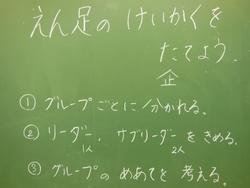 えん足の けいかくを
たてよう。
企
① グループごとに 分かれる。
② リーダー、サブリーダーを きめる。
1人 2人
③ グループの めあてを 考える。